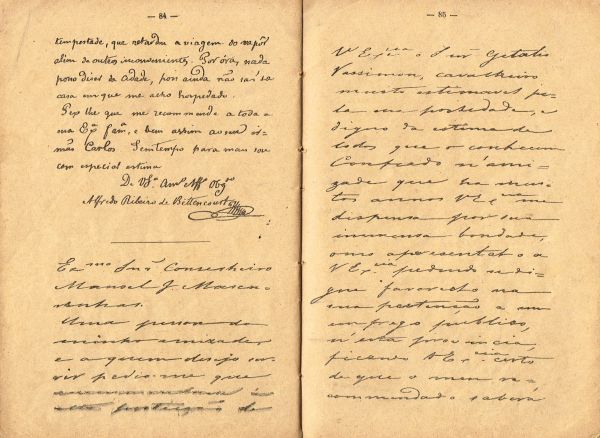 — 84 —
tempestade, que retardou a viagem do vapôr
alem de outros inconvenientes. Por óra, nada
posso dizer da cidade, pois ainda não sai da
casa em que me acho hospedado.
Peço lhe que me recommende a toda a
sua Exª. famª. e bem assim ao seu ir-
mão Carlos Sem tempo para mais sou
com especial estima
De VSª. Amº. Affº. Obgº
Alfredo Ribeiro de Bittencourt
Exmo Snr. Conselheiro
Manoel J. Mascarenhas.
Uma pessoa de
minha amizade
e a quem desejo ser-
vir pedio-me que
protecção de
— 85 —
VExcia o Snr Getulio
Vassimon, cavalheiro
muito estimavel pe-
la sua probidade, e
digno da estima de
todos que o conhecem
Confiado n'ami-
zade que ha mui-
tos annos VExcia me
dispensa por sua
immensa bondade,
ouso apresental-o a
VExcia pedindo se di-
gne favorecel-o na
sua pertenção a um
emprego publico,
n'esta provincia,
ficando VExcia certo
de que o meu re-
commendado saberá